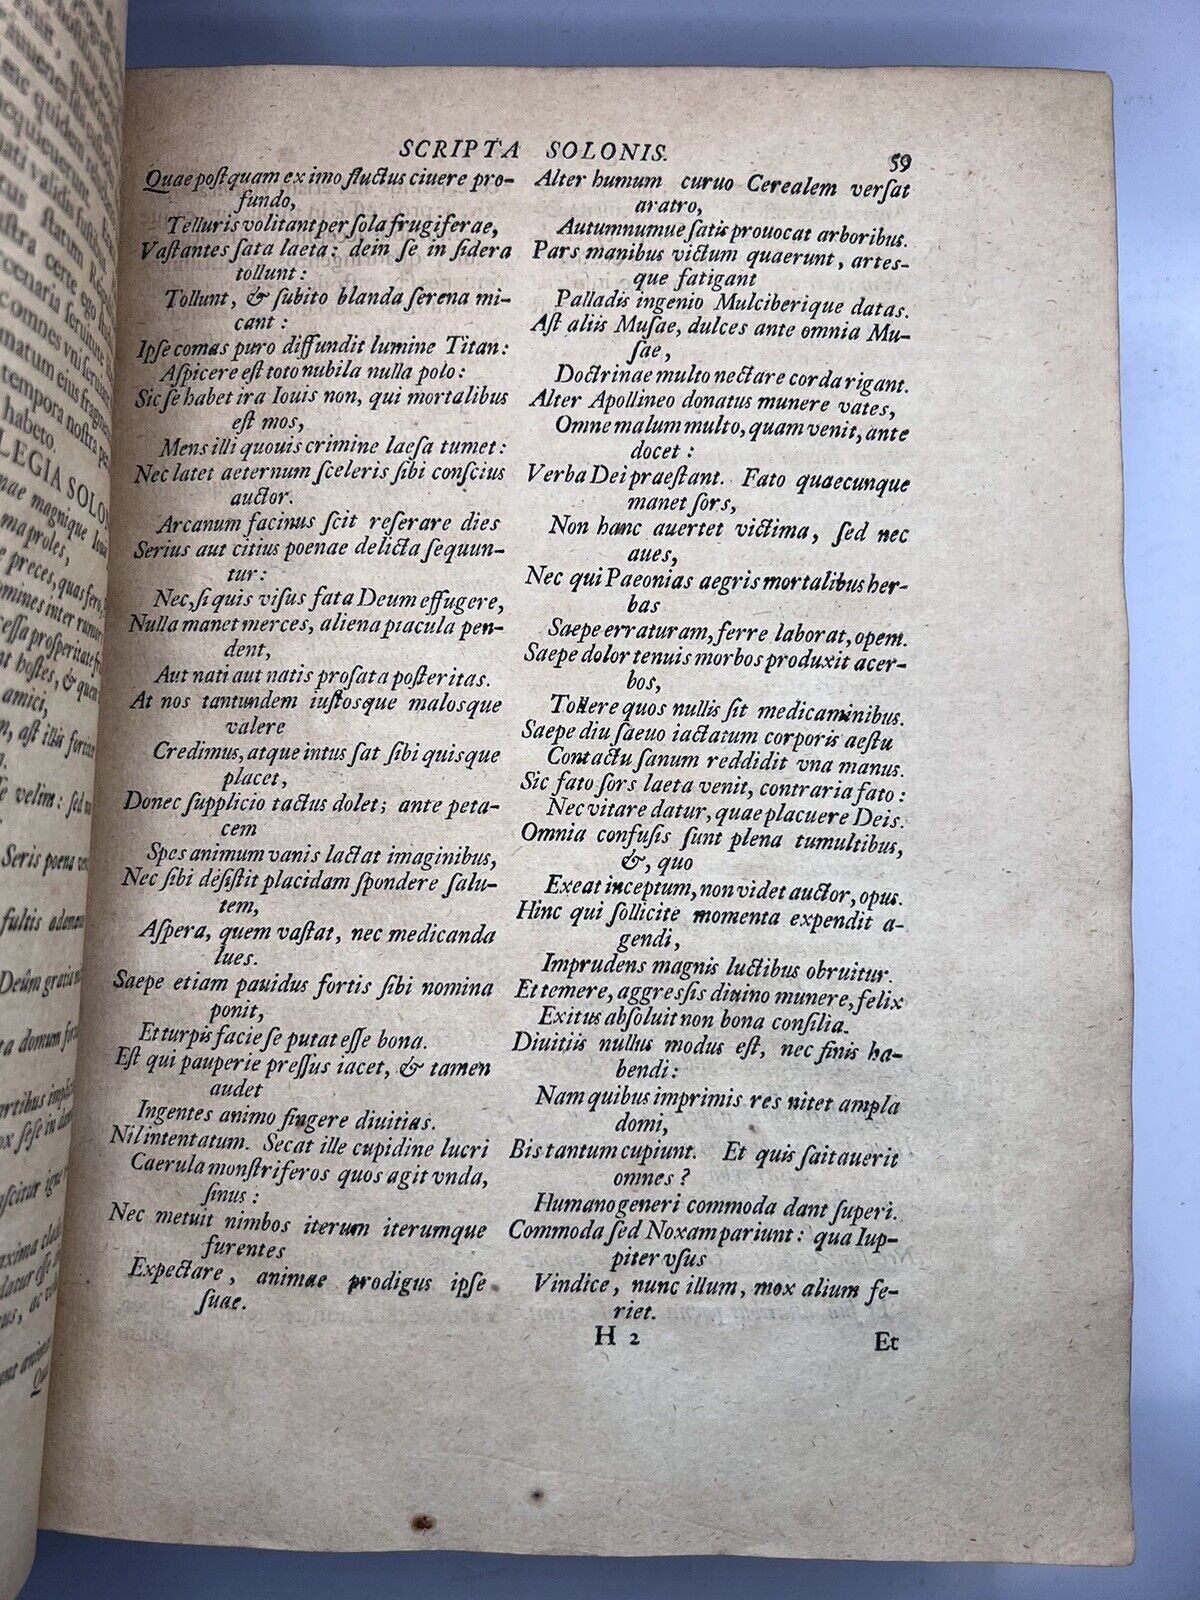 SCRIPTA SOLONIS.
59
Quae postquam ex imo fluctus ciuere pro-
fundo,
Telluris volitant per sola frugiferae,
Vastantes sata laeta: dein se in sidera
tollunt:
Tollunt, & subito blanda serena mi-
cant:
Ipse comas puro diffundit lumine Titan:
Aspicere est toto nubila nulla polo:
Sic se habet ira Iouis non, qui mortalibus
est mos,
Mens illi quouis crimine laesa tumet:
Nec latet aeternum sceleris sibi conscius
auctor.
Arcanum facinus scit reserare dies
Serius aut citius poenae delicta sequun-
tur:
Nec, si quis visus fata Deum effugere,
Nulla manet merces, aliena piacula pen-
dent,
Aut nati aut natis prosata posteritas.
At nos tantundem iustosque malosque
valere
Credimus, atque intus sat sibi quisque
placet,
Donec supplicio tactus dolet; ante peta-
cem
Spes animum vanis lactat imaginibus,
Nec sibi desistit placidam spondere salu-
tem,
Aspera, quem vastat, nec medicanda
lues.
Saepe etiam pauidus fortis sibi nomina
ponit,
Et turpis facie se putat esse bona.
Est qui pauperie pressus iacet, & tamen
audet
Ingentes animo fingere diuitias.
Nil intentatum. Secat ille cupidine lucri
Caerula monstriferos quos agit vnda,
sinus:
Nec metuit nimbos iterum iterumque
furentes
Expectare, animae prodigus ipse
suae.
Alter humum curuo Cerealem versat
aratro,
Autumnumue satis prouocat arboribus.
Pars manibus victum quaerunt, artes-
que fatigant
Palladis ingenio Mulciberique datas.
Ast aliis Musae, dulces ante omnia Mu-
sae,
Doctrinae multo nectare corda rigant.
Alter Apollineo donatus munere vates,
Omne malum multo, quam venit, ante
docet:
Verba Dei praestant. Fato quaecunque
manet sors,
Non hanc auertet victima, sed nec
aues,
Nec qui Paeonias aegris mortalibus her-
bas
Saepe erraturam, ferre laborat, opem.
Saepe dolor tenuis morbos produxit acer-
bos,
Tollere quos nullis sit medicaminibus.
Saepe diu saeuo iactatum corporis aestu
Contactu sanum reddidit vna manus.
Sic fato sors laeta venit, contraria fato:
Nec vitare datur, quae placuere Deis.
Omnia confusis sunt plena tumultibus,
&, quo
Exeat inceptum, non videt auctor, opus.
Hinc qui sollicite momenta expendit a-
gendi,
Imprudens magnis luctibus obruitur.
Et temere, aggressis diuino munere, felix
Exitus absoluit non bona consilia.
Diuitiis nullus modus est, nec finis ha-
bendi:
Nam quibus imprimis res nitet ampla
domi,
Bis tantum cupiunt. Et quis saitauerit
omnes?
Humano generi commoda dant superi.
Commoda sed Noxam pariunt: qua Iup-
piter vsus
Vindice, nunc illum, mox alium fe-
riet.
H 2
Et